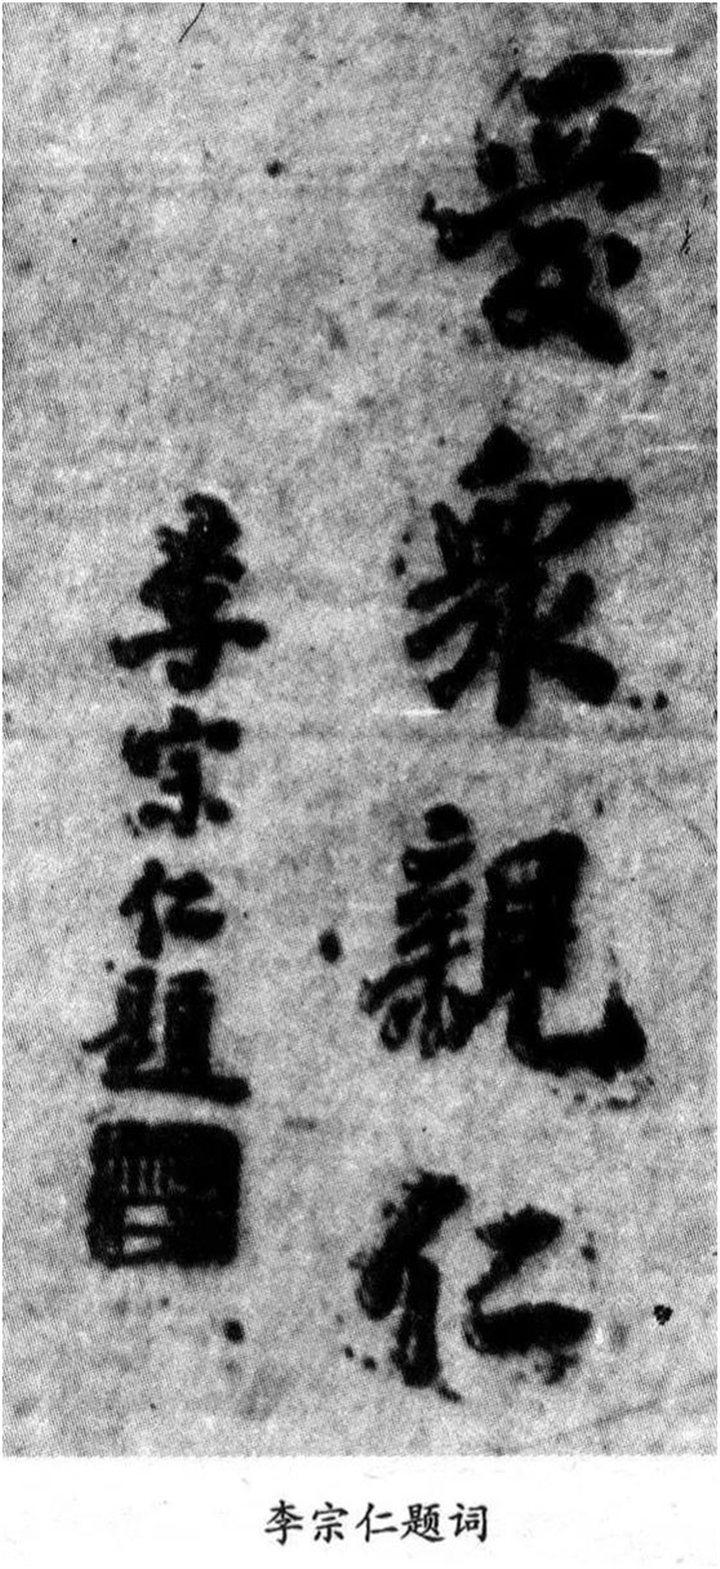 愛衆親仁
李宗仁題
李宗仁题词